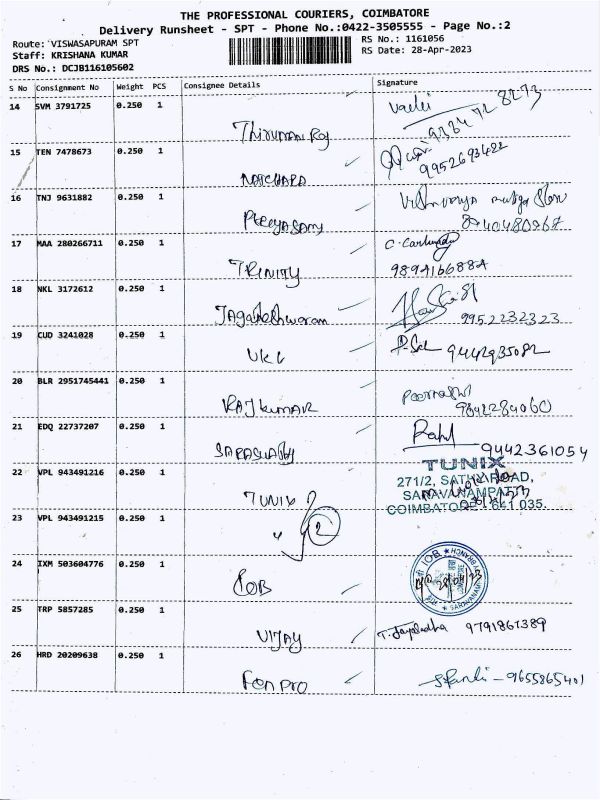 THE PROFESSIONAL COURIERS, COIMBATORE
Delivery Runsheet - SPT - Phone No.:0422-3505555 - Page No.:2
Route: VISWASAPURAM SPT
RS No.: 1161056
Staff: KRISHANA KUMAR
RS Date: 28-Apr-2023
DRS No.: DCJB116105602
S No Consignment No Weight PCS Consignee Details Signature
14 SVM 3791725 0.250 1
Thiruman Raj
15 TEN 7478673 0.250 1
9952693422
16 TNJ 9631882 0.250 1
Periyasamy
8940480967
17 MAA 280266711 0.250 1
TRINITY
9894166884
18 NKL 3172612 0.250 1
Jagatheshwaran
9952232323
19 CUD 3241028 0.250 1
UKC
9442935082
20 BLR 2951745441 0.250 1
RAJ kumar
9842284060
21 EDQ 22737207 0.250 1
Rahul
9442361054
22 VPL 943491216 0.250 1
TUNIX
TUNIX
271/2, SATHY ROAD,
SARAVANAMPATTI
COIMBATORE - 641 035.
23 VPL 943491215 0.250 1
" 2
24 IXM 503604776 0.250 1
IOB
IOB
25 TRP 5857285 0.250 1
VIJAY
T. Jayaladha 9791861389
26 HRD 20209638 0.250 1
Fen pro
9655865401